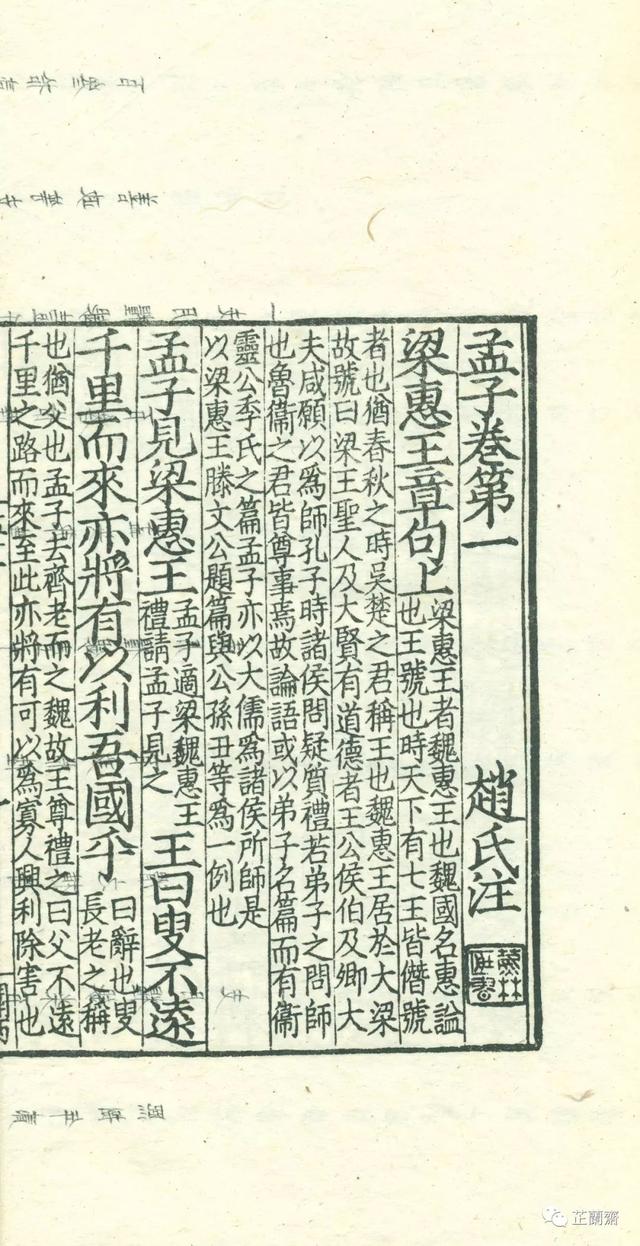 孟子卷第一 趙氏注
梁惠王章句上
梁惠王者魏惠王也魏國名惠謚
也王號也時天下有七王皆僭號
者也猶春秋之時吳楚之君稱王也魏惠王居於大梁
故號曰梁王聖人及大賢有道德者王公侯伯及卿大
夫咸願以爲師孔子時諸侯問疑質禮若弟子之問師
也魯衞之君皆尊事焉故論語或以弟子名篇而有衞
靈公季氏之篇孟子亦以大儒爲諸侯所師是
以梁惠王滕文公題篇與公孫丑等爲一例也
孟子見梁惠王
孟子適梁魏惠王
禮請孟子見之
王曰叟不遠
千里而來亦將有以利吾國乎
曰辭也叟
長老之稱
也猶父也孟子去齊老而之魏故王尊禮之曰父不遠
千里之路而來至此亦將有可以爲寡人興利除害也
芷蘭齋